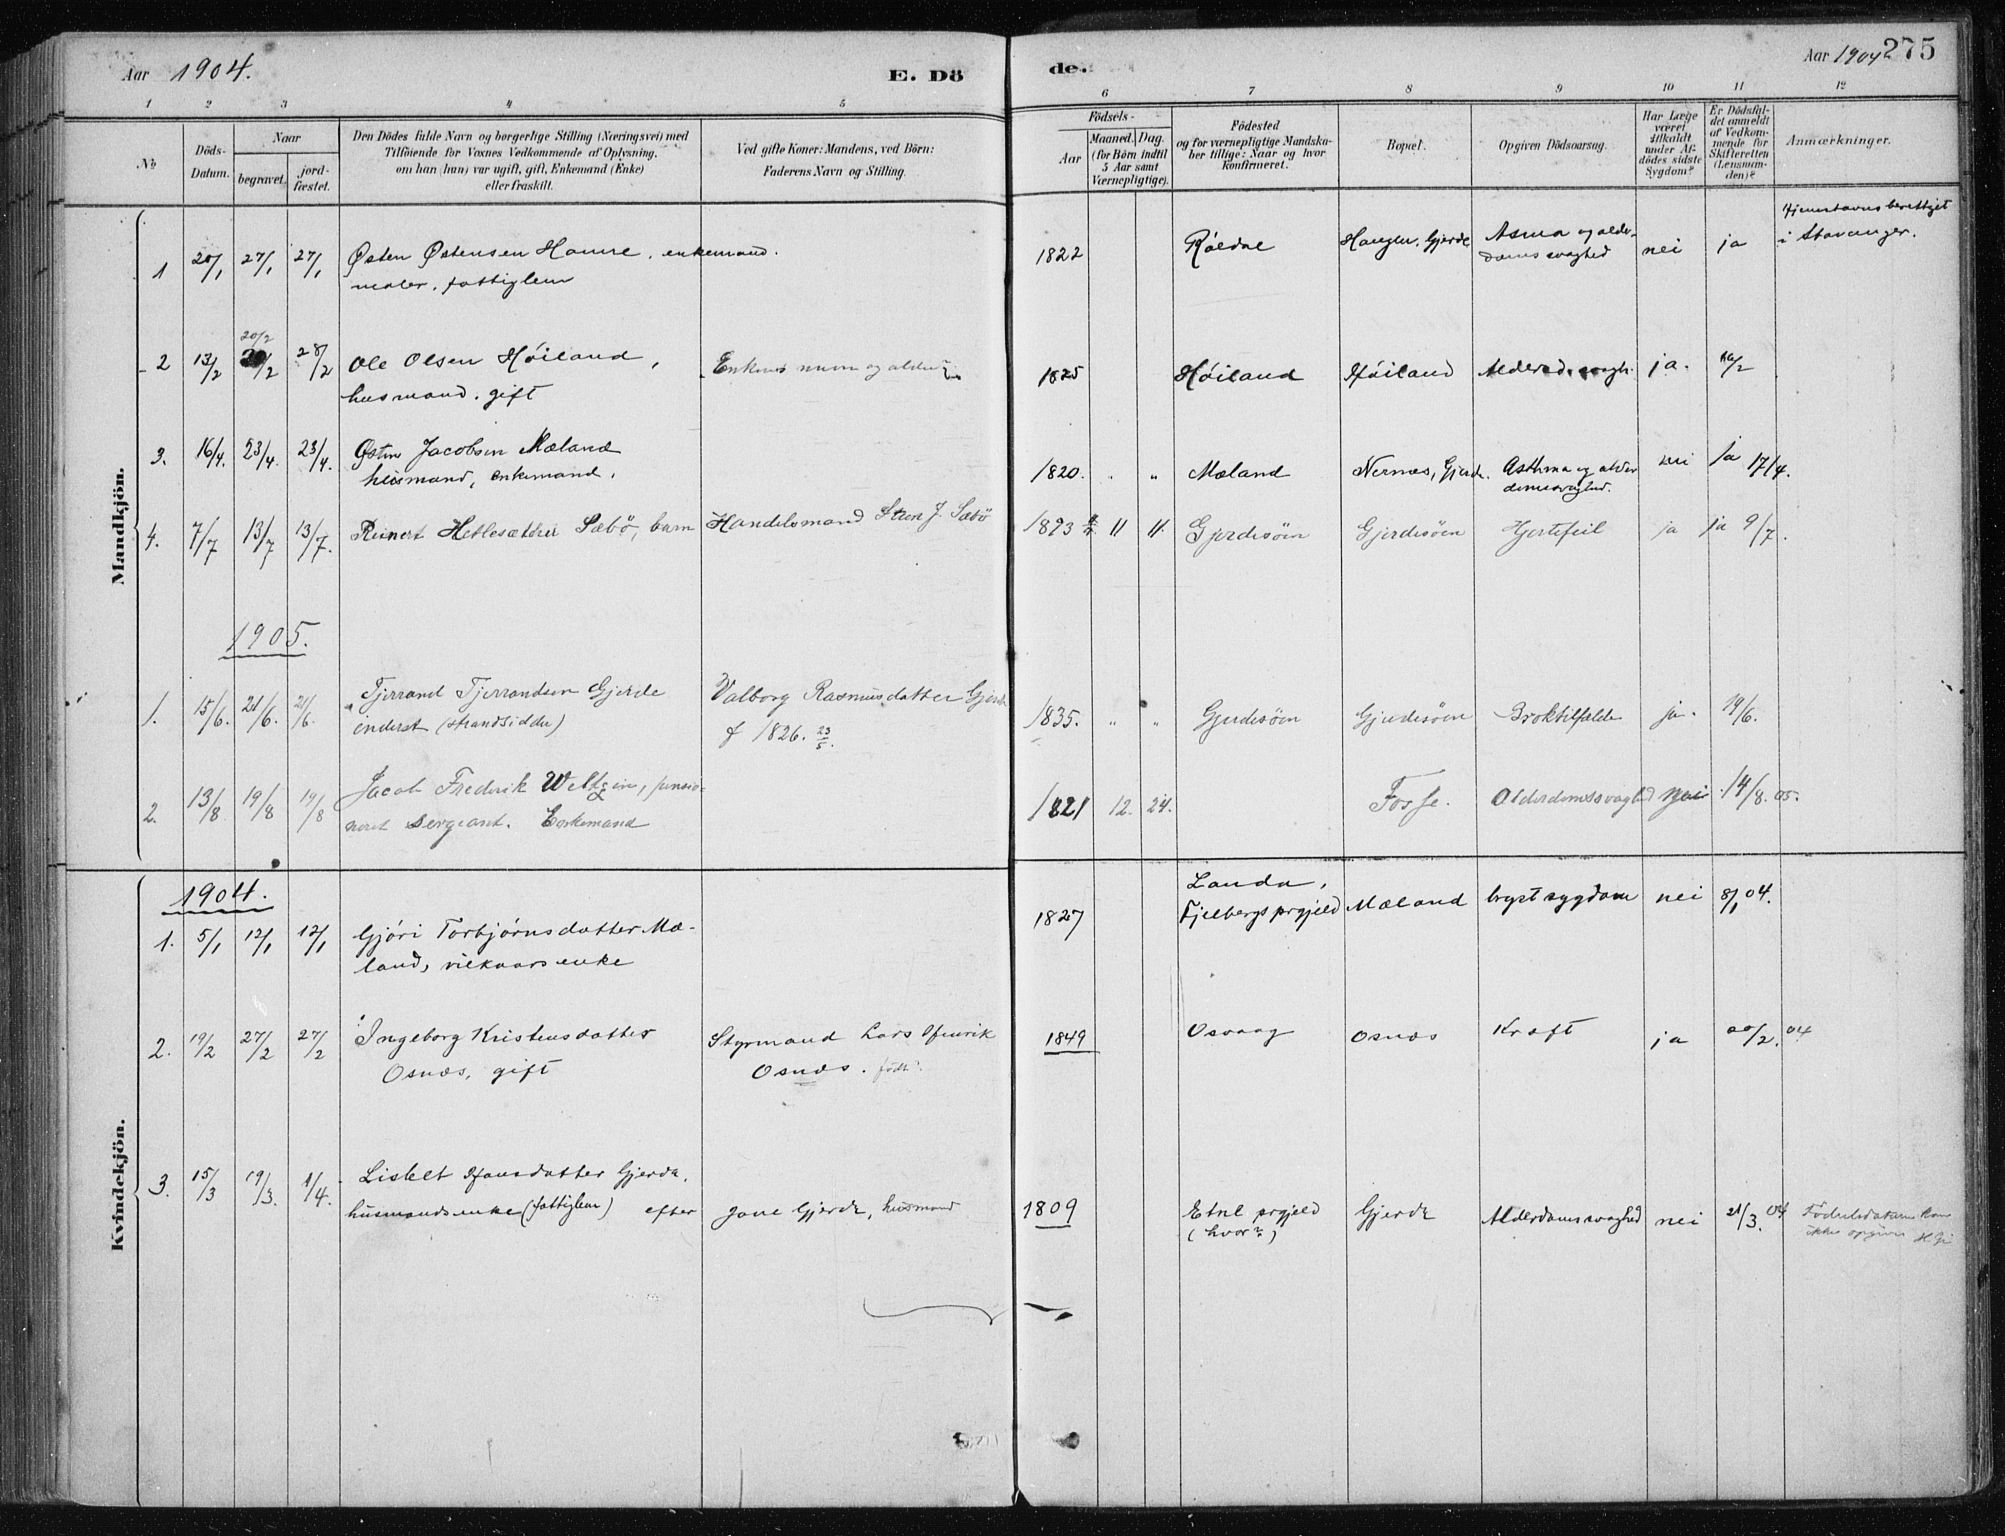 Aar 1904.
E. Dö
de.
Aar 1904
275
1 2 3 4 5 6 7 8 9 10 11 12
No
Döds-
Datum.
Naar
begravet.
jord-
fæstet.
Den Dödes fulde Navn og borgerlige Stilling (Næringsvei) med
Tilföiende for Voxnes Vedkommende af Oplysning,
om han (hun) var ugift, gift, Enkemand (Enke)
eller fraskilt.
Ved gifte Koner: Mandens, ved Börn:
Faderens Navn og Stilling.
Födsels-
Aar
Maaned. Dag.
(for Börn indtil
5 Aar samt
Værnepligtige).
Födested
og for værnepligtige Mandska-
ber tillige: Naar og hvor
konfirmeret.
Bopæl.
Opgiven Dödsaarsag.
Har Læge
været
tilkaldt
under Af-
dödes sidste
Sygdom?
Er Dödsfal-
det anmeldt
af Vedkom-
mende for
Skifteretten
(Lensman-
den)?
Anmærkninger.
Mandkjön.
Hjemstavnsberettiget
1 20/1 27/1 27/1 Østen Østensen Hamre, enkemand. 1822 Røldal Haugen, Gjerde Asma og alder- nei ja i Stavanger.
maler, fattiglem
domssvaghed
20/2
2 13/2 /2 28/2 Ole Olsen Høiland, Enkens navn og alder? 1825 Høiland Høiland Alderd. svagh. ja. /2
husmand, gift
3. 16/4. 23/4. 23/4. Østen Jacobsen Mæland 1820. " " Mæland Nernæs, Gjerde. Asthma og alder nei ja 17/4.
husmand, enkemand.
domssvaghed.
4. 7/7 13/7 13/7. Reinert Hetlesæther Sæbö, barn Handelsmand Sten J. Sæbö 1893 11 11. Gjerdesöen Gjerdesöen Hjertefeil ja ja 9/7.
1905.
1. 15/6. 21/6. 21/6. Tjerrand Tjerrandsen Gjerde Valborg Rasmusdatter Gjerde 1835. " " Gjerdesöen Gjerdesöen Broktilfælde ja. 19/6.
inderst (strandsidder) f 1826. 23/5.
2. 13/8 19/8 19/8 Jacob Frederik Weltzin, pensio- 1821 12. 24. Fosse. Alderdomssvaghed nei 14/8. 05.
neret Sergeant. Enkemand
Kvindekjön.
1904.
1. 5/1 12/1 12/1 Gjøri Torbjørnsdatter Mæ- 1827 Landa, Mæland brystsygdom nei 8/1 04.
land, vilkaarsenke Fjelbergs prgjeld
2. 19/2 27/2 27/2 Ingeborg Kristensdatter Styrmand Lars Henrik 1849 Osvaag Osnæs Kræft ja 20/2. 04
Osnæs, gift Osnæs. født?
3. 15/3 19/3. 1/4. Lisbet Hansdatter Gjerde,
husmandsenke (fattiglem) efter Jone Gjerde, husmand 1809 Etne prgjeld Gjerde Alderdomssvaghed nei 21/3. 04 Fødselsdatum kan
(hvor?) ikke opgives